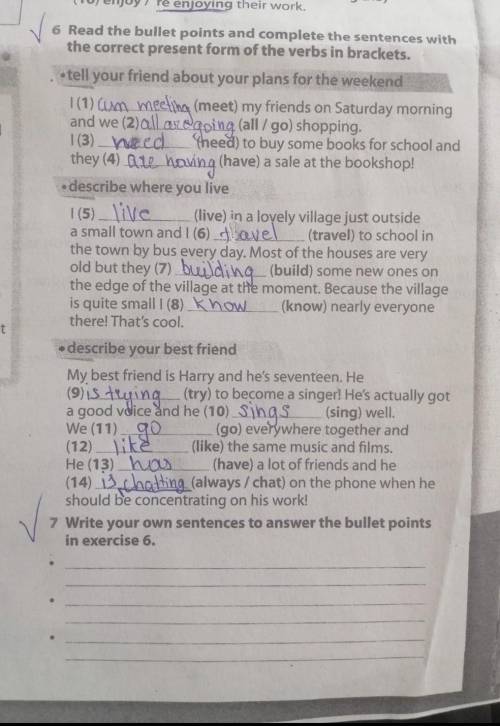 enjoy / 're enjoying their work.
6 Read the bullet points and complete the sentences with
the correct present form of the verbs in brackets.
• tell your friend about your plans for the weekend
I (1) am meeting (meet) my friends on Saturday morning
and we (2) all are going (all / go) shopping.
I (3) need (need) to buy some books for school and
they (4) are having (have) a sale at the bookshop!
• describe where you live
I (5) live (live) in a lovely village just outside
a small town and I (6) travel (travel) to school in
the town by bus every day. Most of the houses are very
old but they (7) building (build) some new ones on
the edge of the village at the moment. Because the village
is quite small I (8) know (know) nearly everyone
there! That's cool.
• describe your best friend
My best friend is Harry and he's seventeen. He
(9) is trying (try) to become a singer! He's actually got
a good voice and he (10) sings (sing) well.
We (11) go (go) everywhere together and
(12) like (like) the same music and films.
He (13) has (have) a lot of friends and he
(14) is chatting (always / chat) on the phone when he
should be concentrating on his work!
7 Write your own sentences to answer the bullet points
in exercise 6.